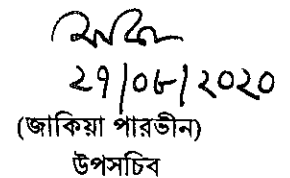 ২৭|০৮|২০২০
(জাকিয়া পারভীন)
উপসচিব